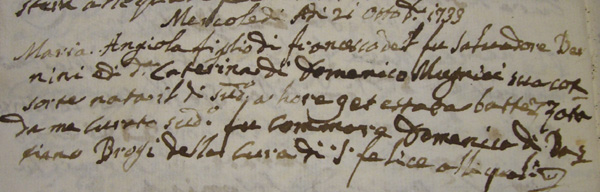 Mercoledi Adi 21 Ottob.e 1739
Maria Angiola figlia di Francesco del fu Salvadore
nini e di d.a Caterina di Domenico Mugnieri sua con
sorte nata il di sud.o a hore et e stata battezzata
da me Curato sud.o fu Commare Domenica di
Brogi della Cura di S. felice